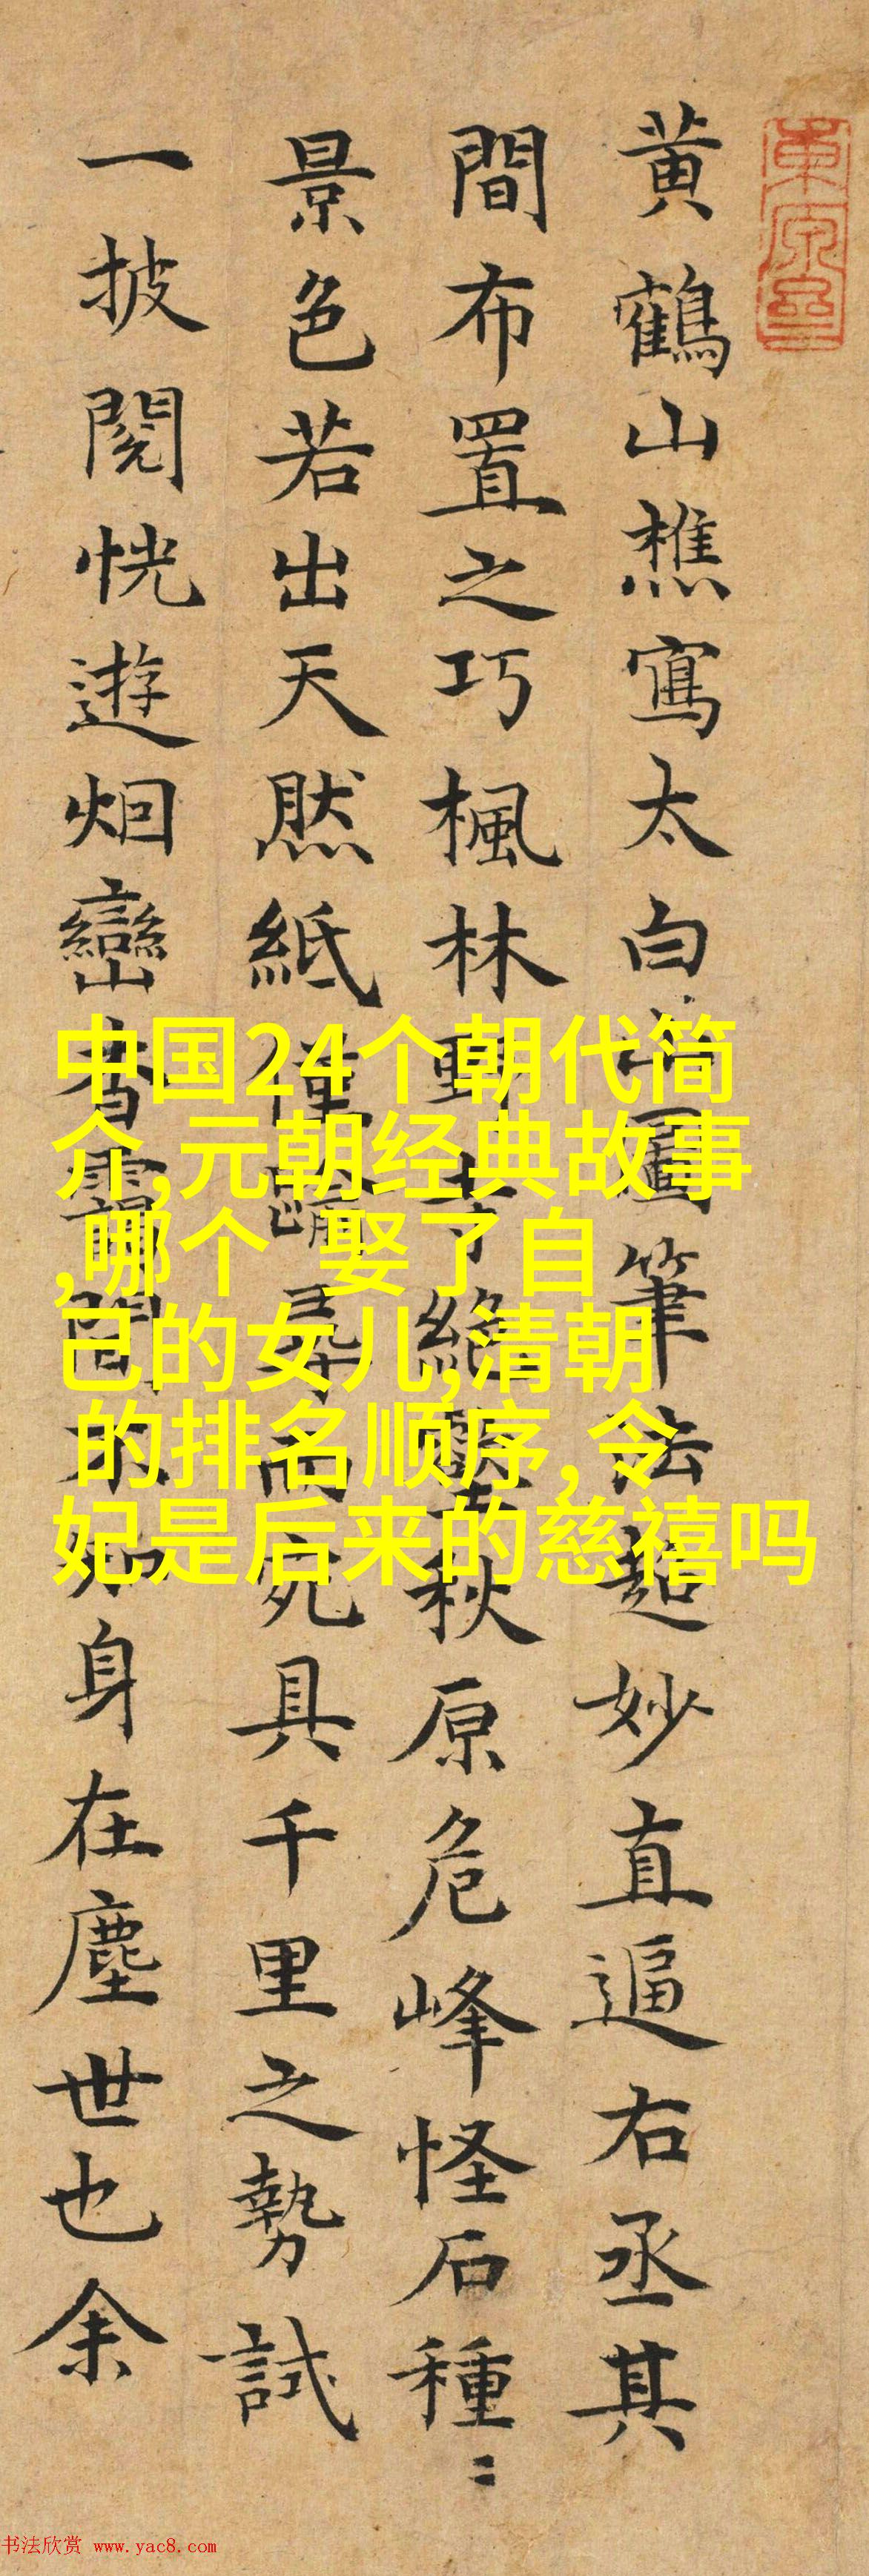 黄鶴山樵寫太白圖筆法超妙直逼右丞其
間布置之巧楓林野秋原危峰怪石種〻
景色若出天然紙僅尋而究具千里之勢試
一披閱恍遊烟巒杳靄間不知身在塵世也余
中国24个朝代简
介,元朝经典故事
,哪个 娶了自
己的女儿,清朝
的排名顺序,令
妃是后来的慈禧吗
书法欣赏 www.yac8.com